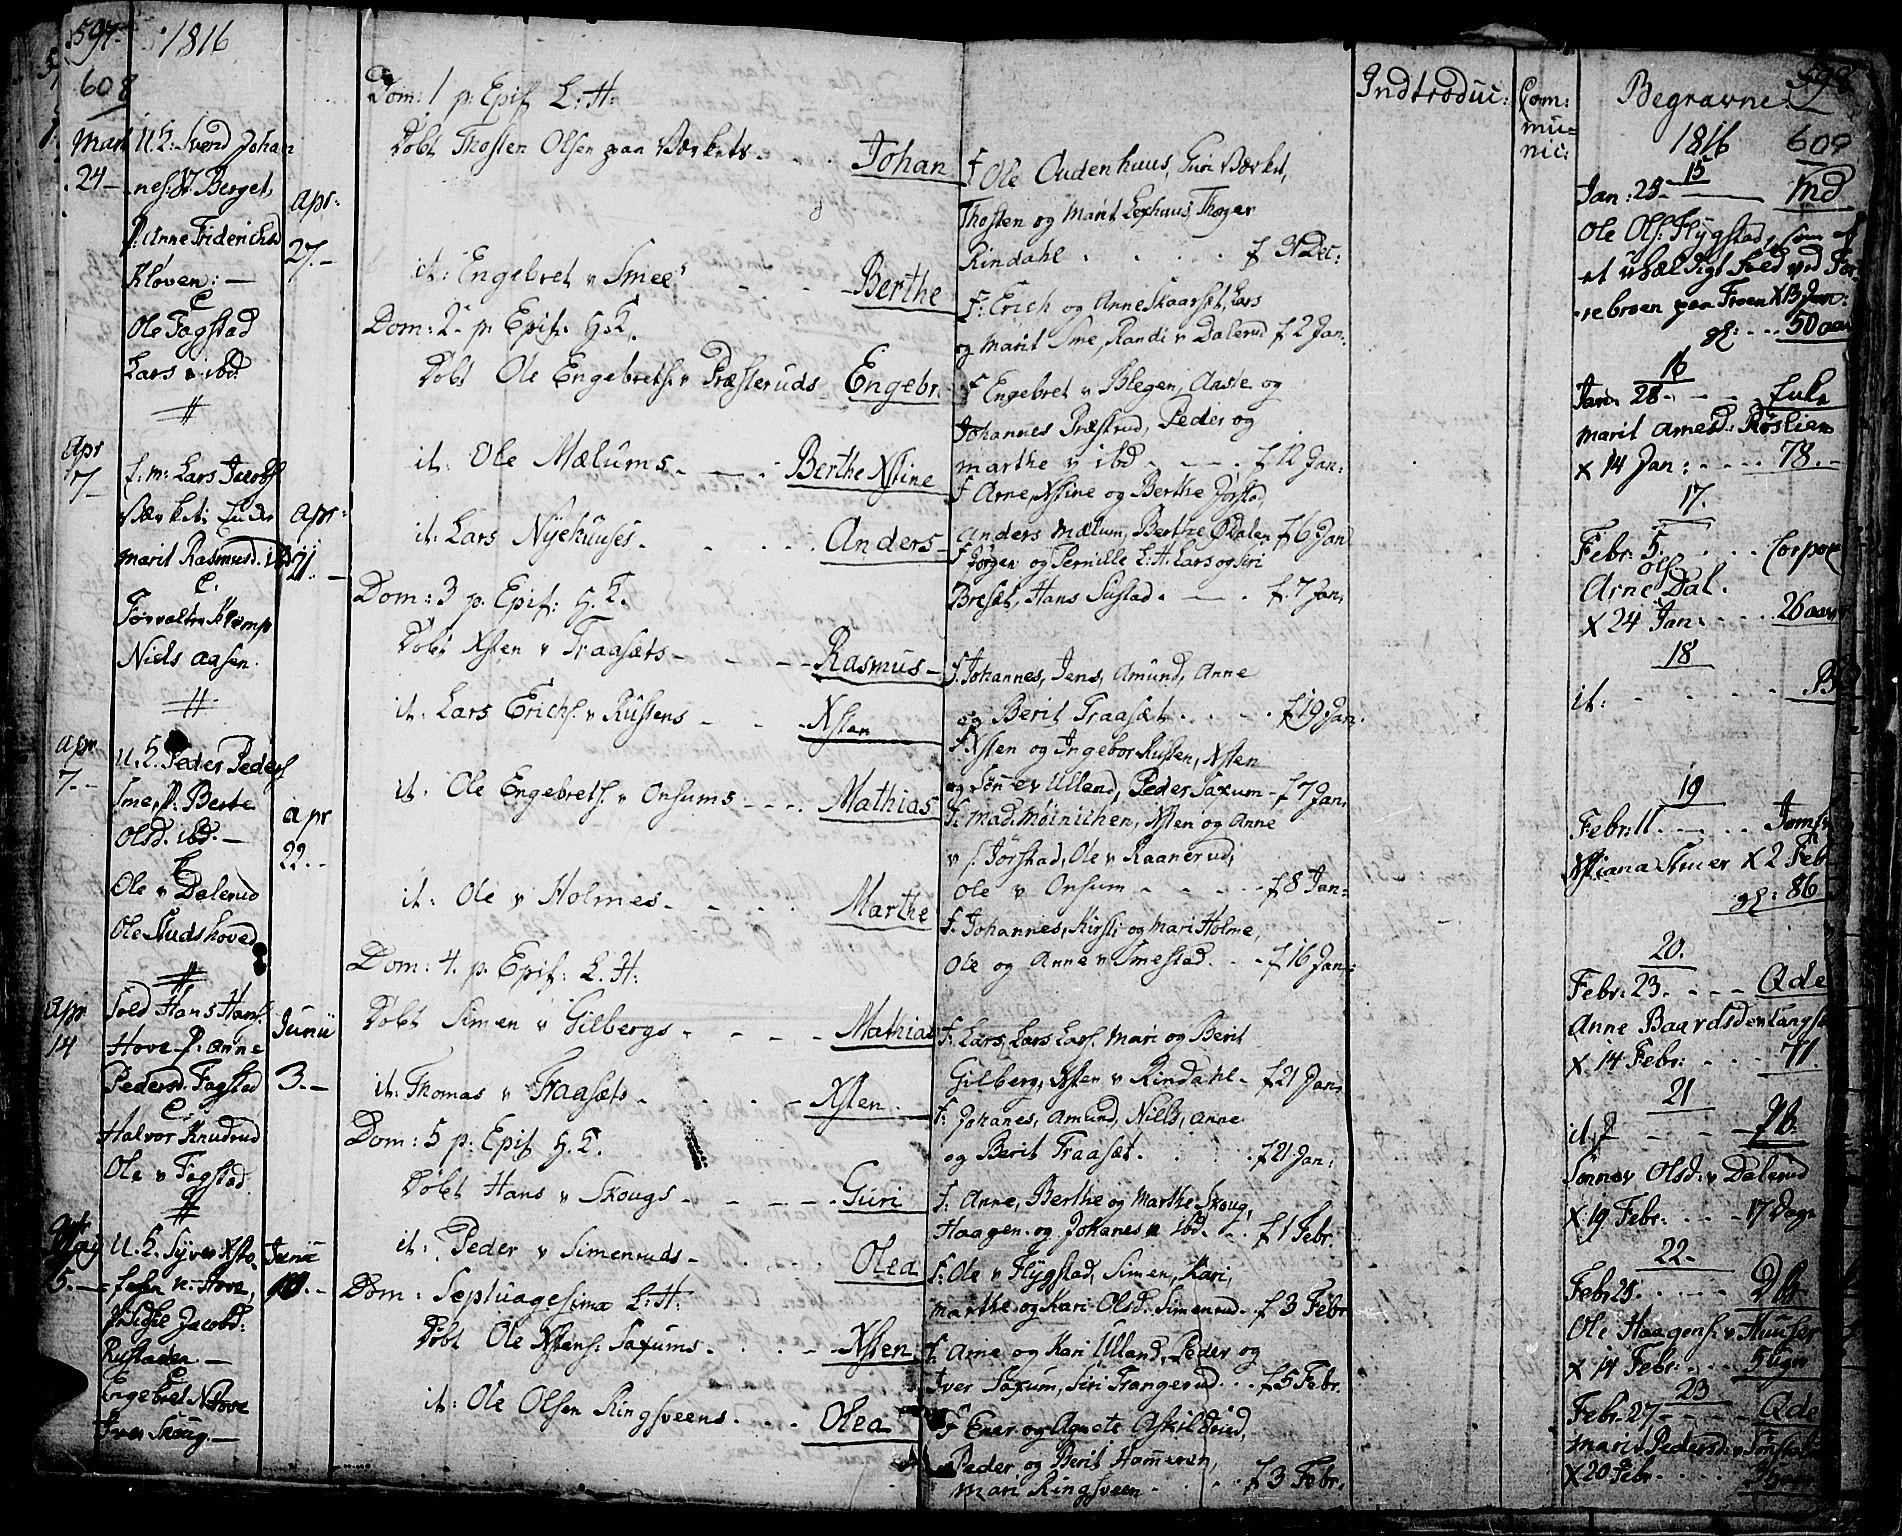 597
1816
608
Mart
24-
U.K: Svend Johan
nes: V. Berget
P: Anne Friderichsd
Kloven: —
C
Ole Fogstad
Lars v ibd
Apr:
27.-
Apr
7-
S.M: Lars Jacobs
Værket: Enke
Marit Rasmusd. ibd
C.
Forvalter Klomp
Niels Aasen.
Apr:
21.-
Apr
7.-
U.K. Peder Peders
Smee, P. Berte
Olsd. ibd. —
C
Ole v Dalerud
Ole Studshoved
Apr
22.-
Apr
14
Sold Hans Hans.
Hove P. Anne
Pedersd. Fogstad
C.
Halvor Knudrud
Ole v Fogstad.
Junii
3.-
May
5.-
U.K. Syver Xsto-
fersen n. Hove,
P. Sidse Jacobd:
Rustaden. —
C
Engebret N. Hove
Iver Skoug. —
Junii
Dom: 1 p: Epif L: H:
Døbt Thosten Olsen paa Værkets - - . Johan
it: Engebret v Smee - - - Berthe
Dom: 2 p. Epif: H.K.
Døbt Ole Engebrets. v Præsteruds Engebr.
it: Ole Mælums - - - . Berthe Xstine
it: Lars Nyehuuses. - - . . . Anders
Dom: 3 p. Epif: H.K.
Døbt Xsten v Traasets - - - - Rasmus -
it: Lars Erichs. v Rustens - - - Xsten
it: Ole Engebrets. v Onsums - - - . Mathias
it: Ole v Holmes - - - . Marthe
Dom: 4. p. Epif: L.H:
Døbt Simen v Gilbergs - - - - Mathias
it: Thomas v Traasets . - - . - Xsten.
Dom: 5 p: Epif H.K.
Døbt Hans v Skougs - - - - . Guri
it: Peder v Simenruds - . . . . Olea
Dom: Septuagesimæ L:H:
Døbt Ole Xstens: Saxums. . . - - Xsten
it: Ole Olsen Ringsveens. . . . Olea
F Ole Audenhuus, Guri Værket,
Thosten og Marit Lexhuus, Thoger
Rindahl . . . . . f 31 Dec:
F: Erich og Anne Skaarset, Lars
og Marit Sme, Randi v Dalerud f 2 Jan:
F Engebret v Blegen, Aaste og
Johannes Præstrud, Peder og
Marthe v ibd - - - . f 12 Jan:
F Arne, Xstine og Berthe Jorstad,
Anders Mælum, Berthe Ødalen f 6 Jan
F Jörgen og Pernille L.H. Lars og Siri
Breset, Hans Sustad. - . f 7 Jan:
F. Johannes, Jens, Amund, Anne
og Berit Traaset . . . . f 19 Jan.
F. Xsten og Ingebor Rusten, Xsten
og Sönnev Ulland, Peder Saxum - f 7 Jan:
F. Mad. Møinichen, Xsten og Anne
v s. Jörstad, Ole v Raanerud,
Ole v Onsum - - - - f 8 Jan:
F. Johannes, Kirsti og Mari Holme,
Ole og Anne v Smestad. . - f 16 Jan:
F: Lars, Lars Lars. Mari og Berit
Gilberg, Xsten v Rindahl - f 21 Jan:
F: Johanes, Amund, Niels, Anne
og Berit Traaset. . . . . f 21 Jan:
F. Anne, Berthe og Marthe Skoug,
Haagen og Johanes v ibd. - . f 1 Febr.
F. Ole v Flÿgstad, Simen, Kari,
Marthe og Kari Olsd. Simenrud . f 3 Febr
F. Arne og Kari Ulland, Peder og
Iver Saxum, Siri Trangerud . . . f 5 Febr.
F Ener og Agnete Askildrud,
Peder og Berit Hammeren,
Mari Ringsveen . . . . f 3 Febr.
Indtroduc:
Com:
mu=
nic:
598
Begravne
1816 609
15
Jan: 25 - Md
Ole Ols: Flÿgstad, som af
et uhældigt fald ved For-
rebroen paa Froen X 13 Jan:
gl: . . . 50 aar
16
Jan: 28 - - - Enke
Marit Arnesd. Røslien
X 14 Jan: . . . . 78.-
17.
Febr: 5. . . . . Corpor
Arne Ols Dal.
X 24 Jan: . . . . 26 aar
18
it: - - - - -
19
Febr: 11. . - . . Jomfr
Xstiana Stuer X 2 Feb
gl: 86
20.
Febr: 23. - - - Qde
Anne Baardsd
X 14 Febr: . . . 71.
21
it: - - - -
Sönnev Olsd: v Dalerud
X 19 Febr: . . . 17 Dage
22-
Feb: 25 . . . . .
Ole Haagens: v Huuser
X 14 Febr: . . . 5 ugr
23
Febr: 27 - - - - Qde
Marit Pedersd: v
X 20 Feb . . . .